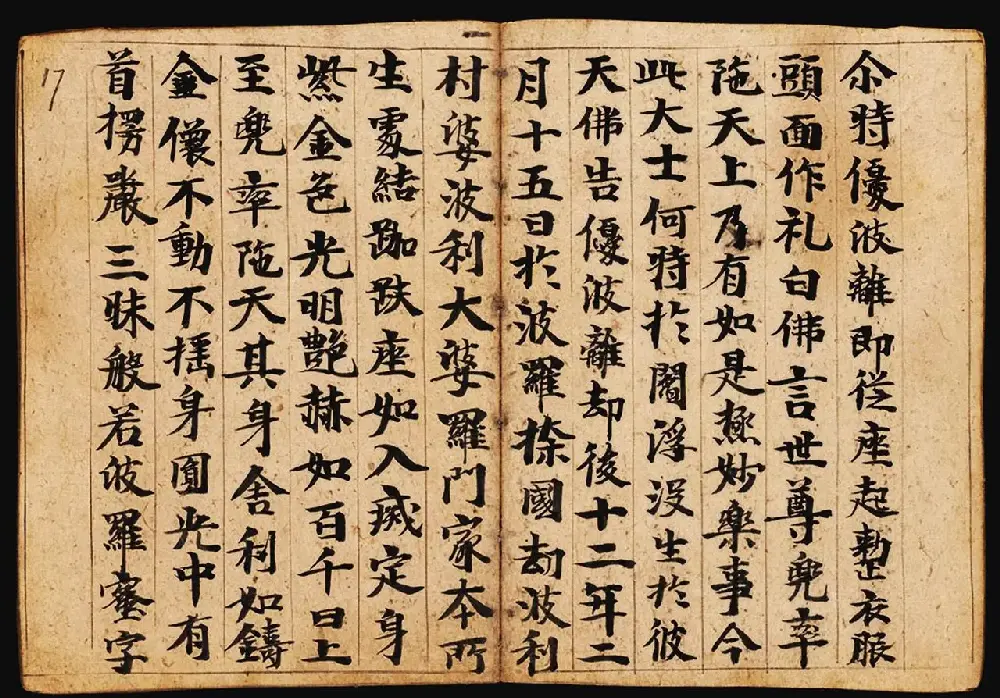 尒時優波離即從座起整衣服
頭面作礼白佛言世尊兜率
陁天上乃有如是極妙樂事今
此大士何時於閻浮没生於彼
天佛告優波離却後十二年二
月十五日於波羅捺國劫波利
村婆波利大婆羅門家本所
生處結跏趺座如入滅定身
紫金色光明艷赫如百千日上
至兜率陁天其身舍利如鑄
金儴不動不揺身圓光中有
首楞嚴三昧般若波羅蜜字
17